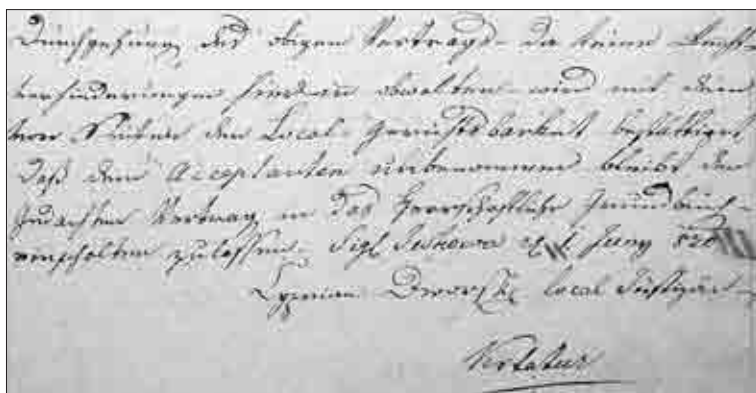 Durchgehung des obigen Vertrags – da keine
hindan obwalten – wird mit dem
von Seiten der Local-Gerichtsbarkeit bestättiget
daß dem Acceptanten unbenommen bleibt den
gedachten Vertrag in das Herrschaftliche Grundbuch
einschalten zu lassen – Sigl. Juny
Cyprian Dworsky local Justiziär
Vertatur